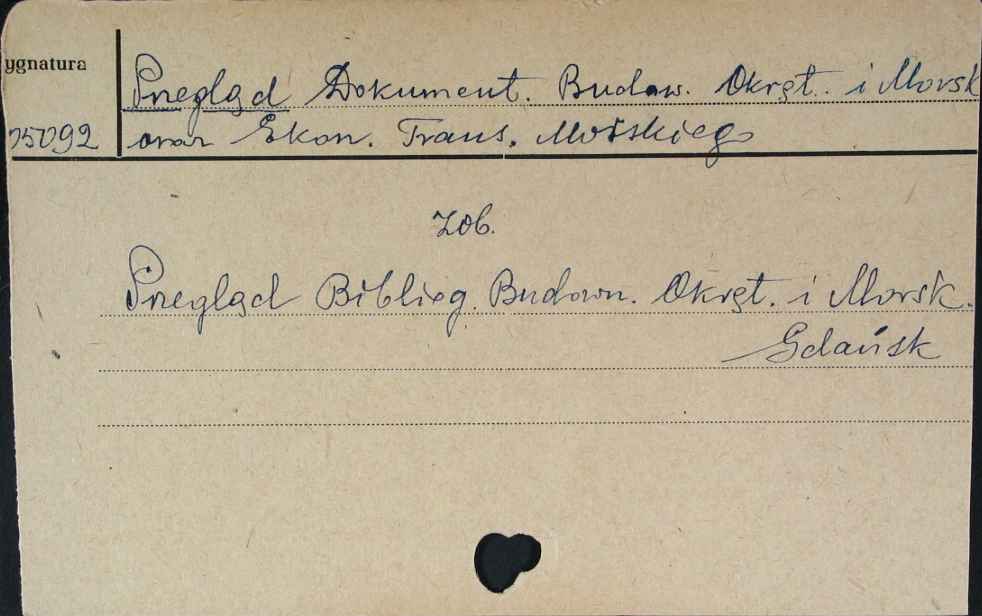 ygnatura
Przegląd Dokument. Budow. Okręt. i Morsk
75092 oraz Ekon. Trans. Morskiego
zob.
Przegląd Bibliog. Budown. Okręt. i Morsk.
Gdańsk